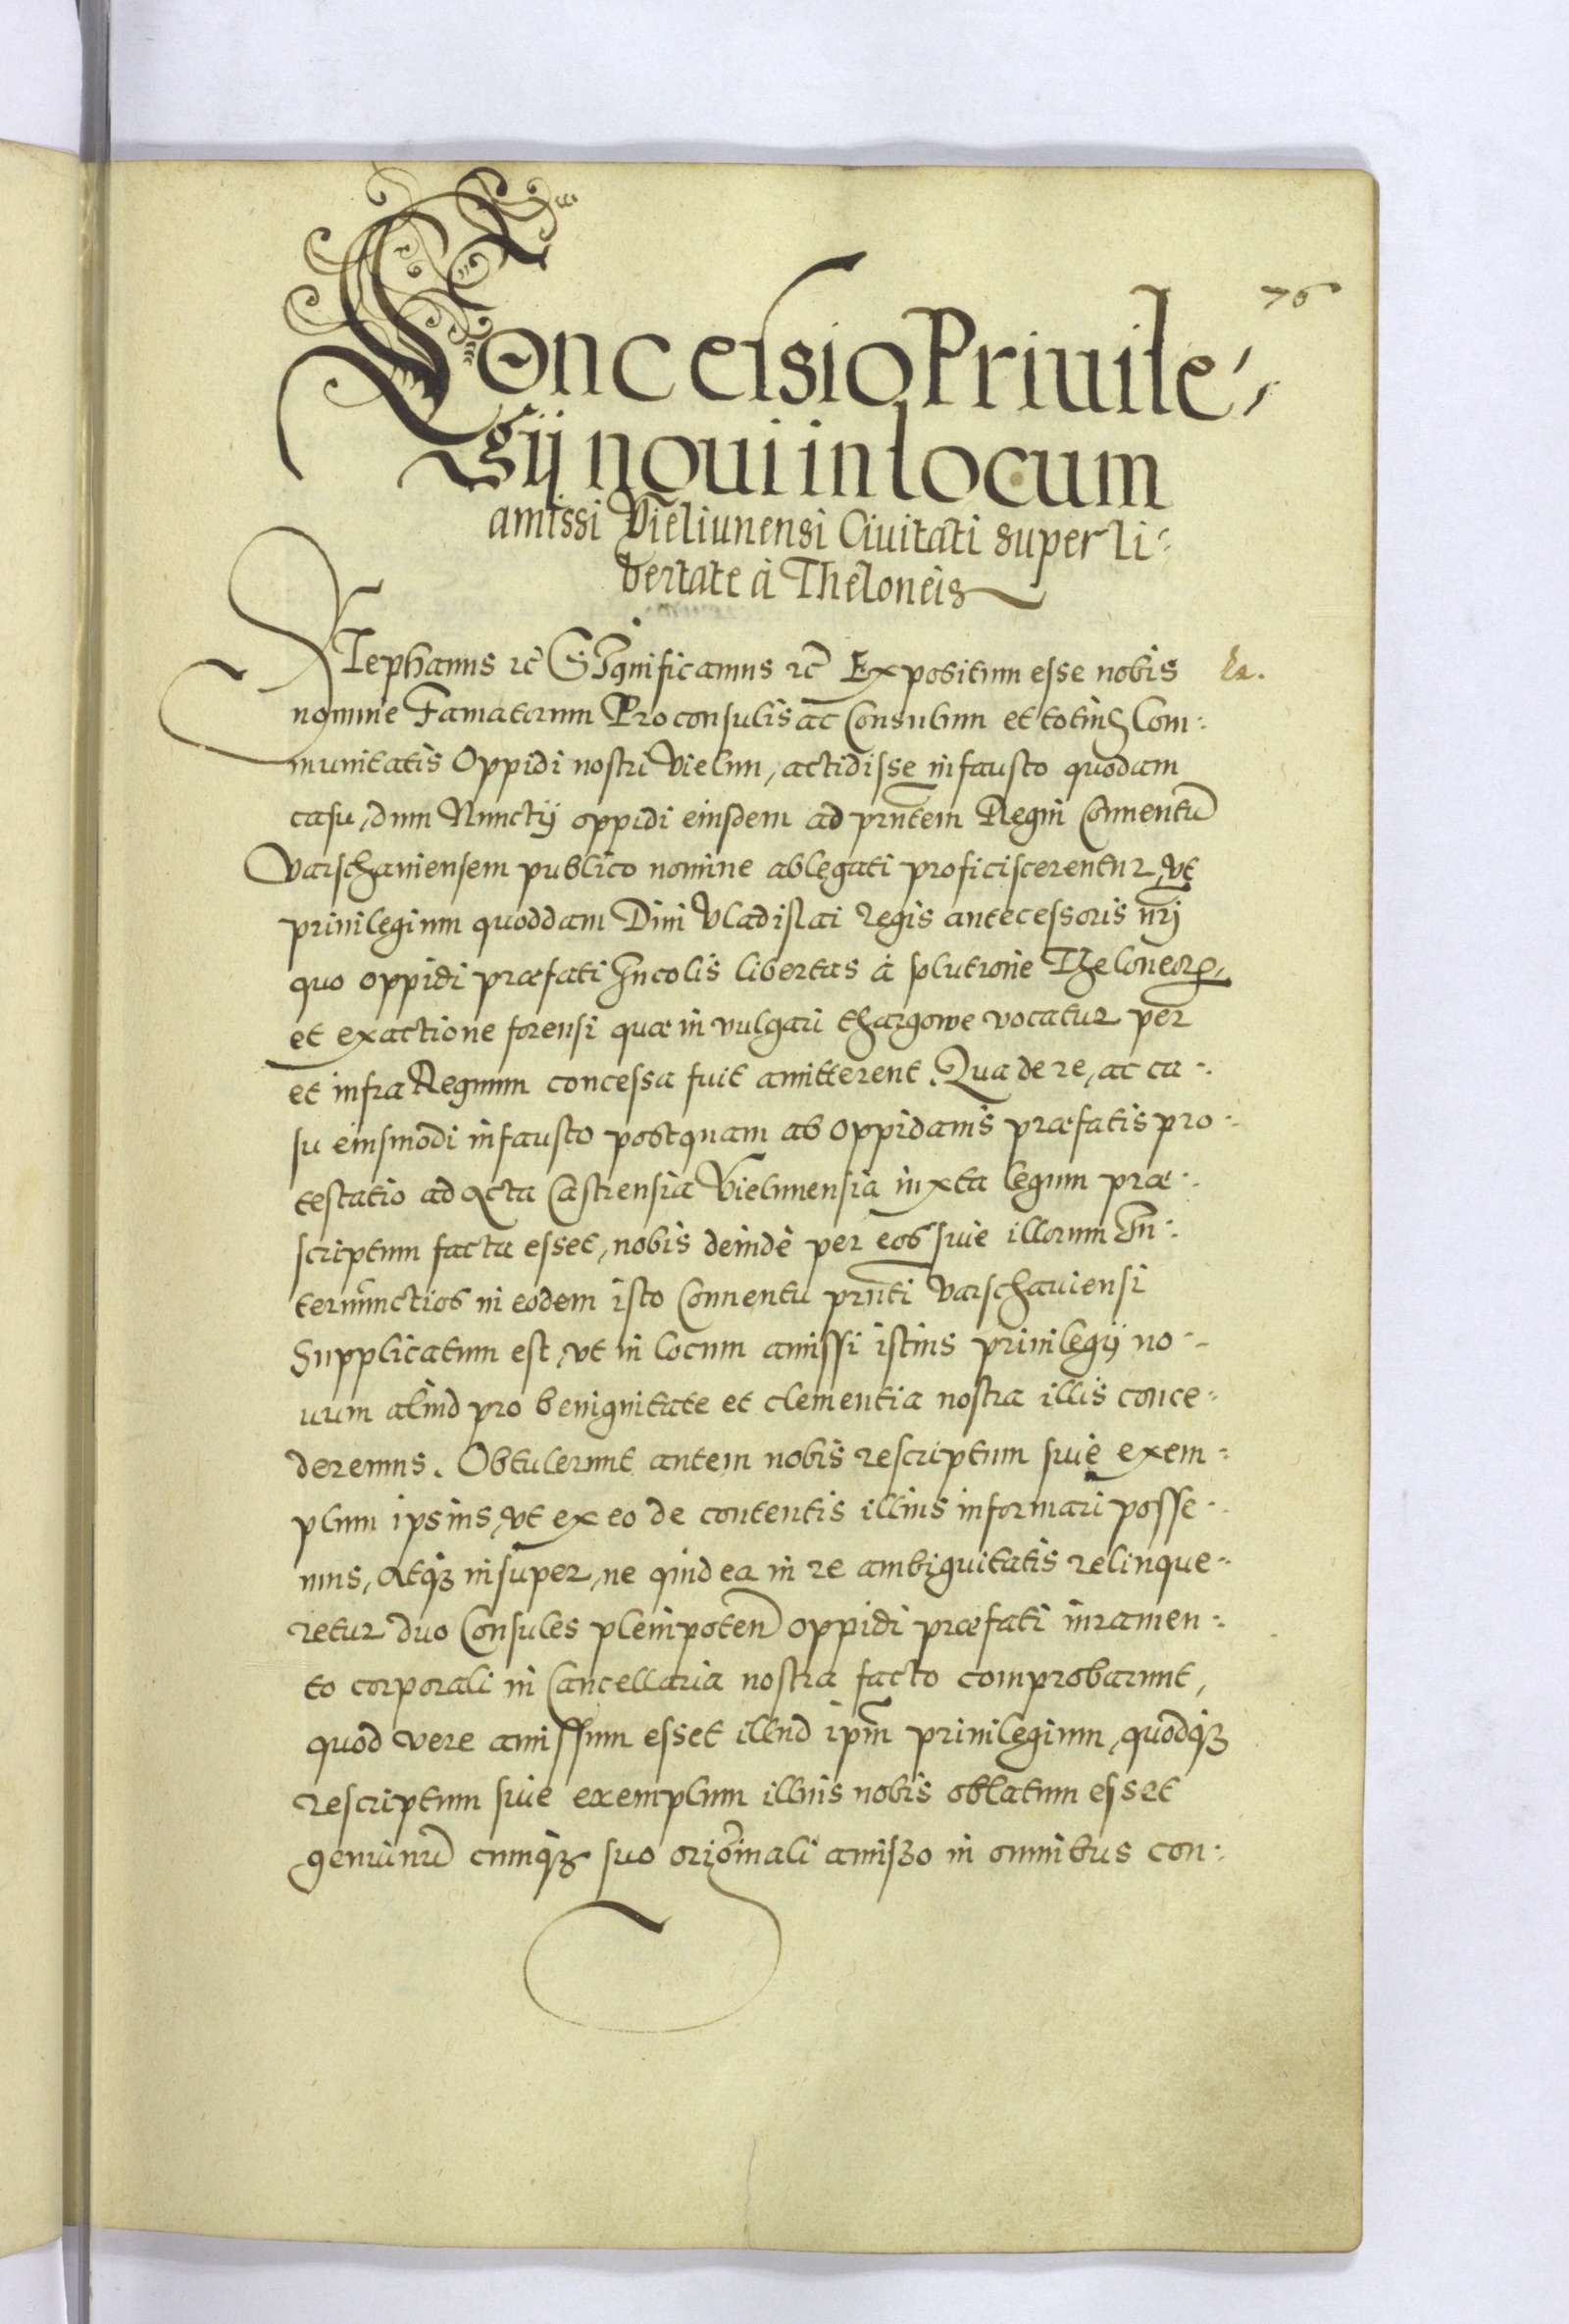 76
Concessio Priuile-
gij noui in locum
amissi Vieliunensi Ciuitati super li-
bertate à Theloneis
Stephanus etc̃ Significamus etc̃ Expositum esse nobis
nomine Famatorum Proconsulis ac Consulum et totius Com-
munitatis Oppidi nostri Vielun, accidisse infausto quodam
casu, dum Nunctij oppidi eiusdem ad prñtem Regni Conuentũ
Varschauiensem publico nomine ablegati proficiscerentur, vt
priuilegium quoddam Diui Vladislai Regis antecessoris nrĩ
quo oppidi præfati Incolis libertas à solutione Theloneorꝝ,
et exactione forensi quæ in vulgari thargowe vocatur per
et infra Regnum concessa fuit amitterent. Qua de re, ac ca-
su eiusmodi infausto postquam ab oppidanis præfatis pro-
testatio ad Acta Castrensia Vielunensia iuxta legum præ-
scriptum facta esset, nobis deinde per eos siue illorum In-
ternunctios in eodem isto Conuentu prñti Varschauiensi
Supplicatum est, vt in locum amissi istius priuilegij no-
uum aliud pro benignitate et clementia nostra illis conce-
deremus. Obtulerunt autem nobis rescriptum siue exem-
plum ipsius, vt ex eo de contentis illius informari posse-
mus, Atqȝ insuper, ne quid ea in re ambiguitatis relinque-
retur duo Consules plenipoten̄ oppidi præfati iuramen-
to corporali in Cancellaria nostra facto comprobarunt,
quod vere amissum esset illud ipm̃ priuilegium, quodqȝ
rescriptum siue exemplum illius nobis oblatum esset
genuinũ cumqȝ suo originali amisso in omnibus con-